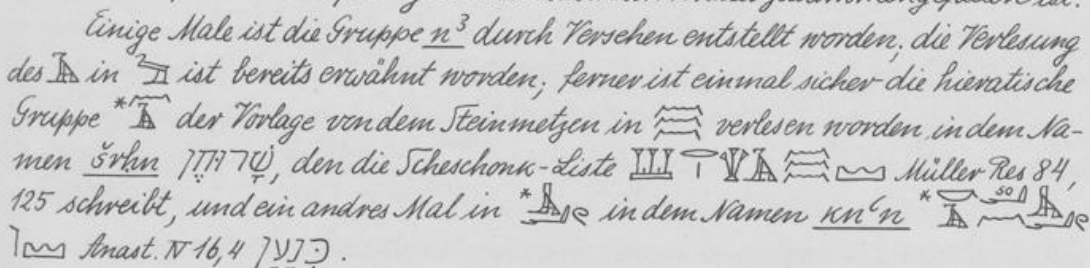 ist.
Einige Male ist die Gruppe n³ durch Versehen entstellt worden; die Verlesung
des in ist bereits erwähnt worden; ferner ist einmal sicher die hieratische
Gruppe * der Vorlage von dem Steinmetzen in verlesen worden in dem Na-
men šrḥn שָׁרוּחֶן, den die Scheschonk-Liste Müller Res 84,
125 schreibt, und ein andres Mal in * in dem Namen kn‘n * so
Anast. IV 16,4 כנען.